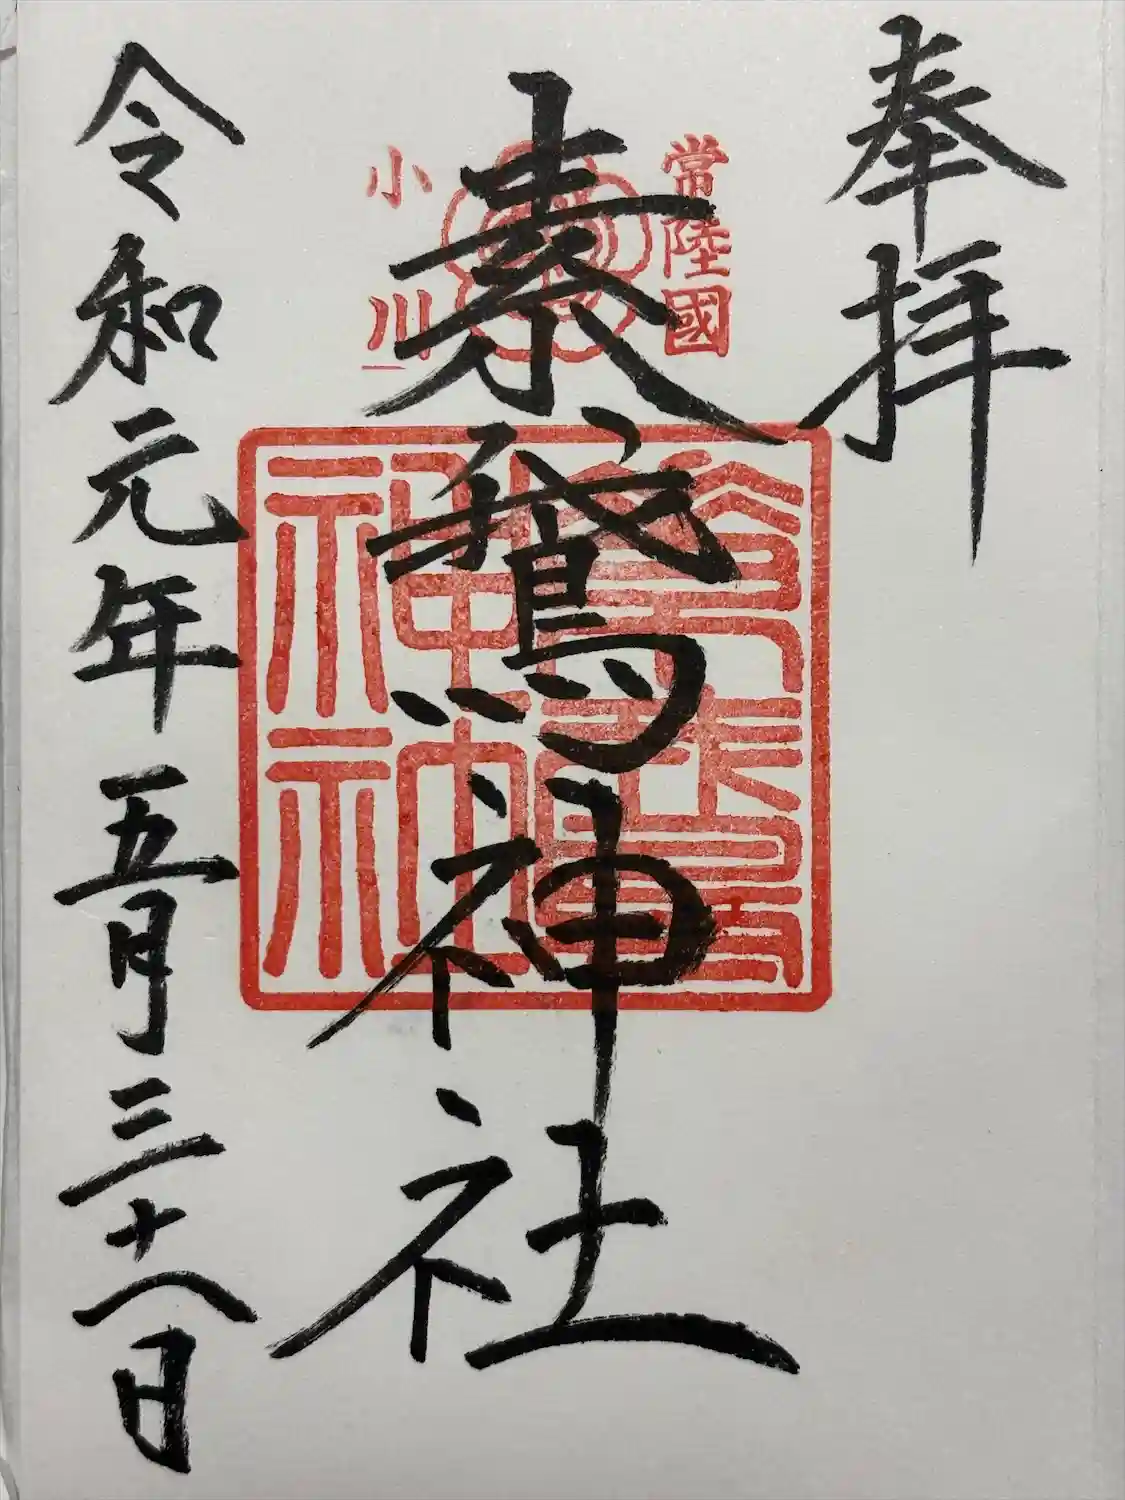 奉拝
常陸國
素鵞神社
小川
令和元年五月三十一日